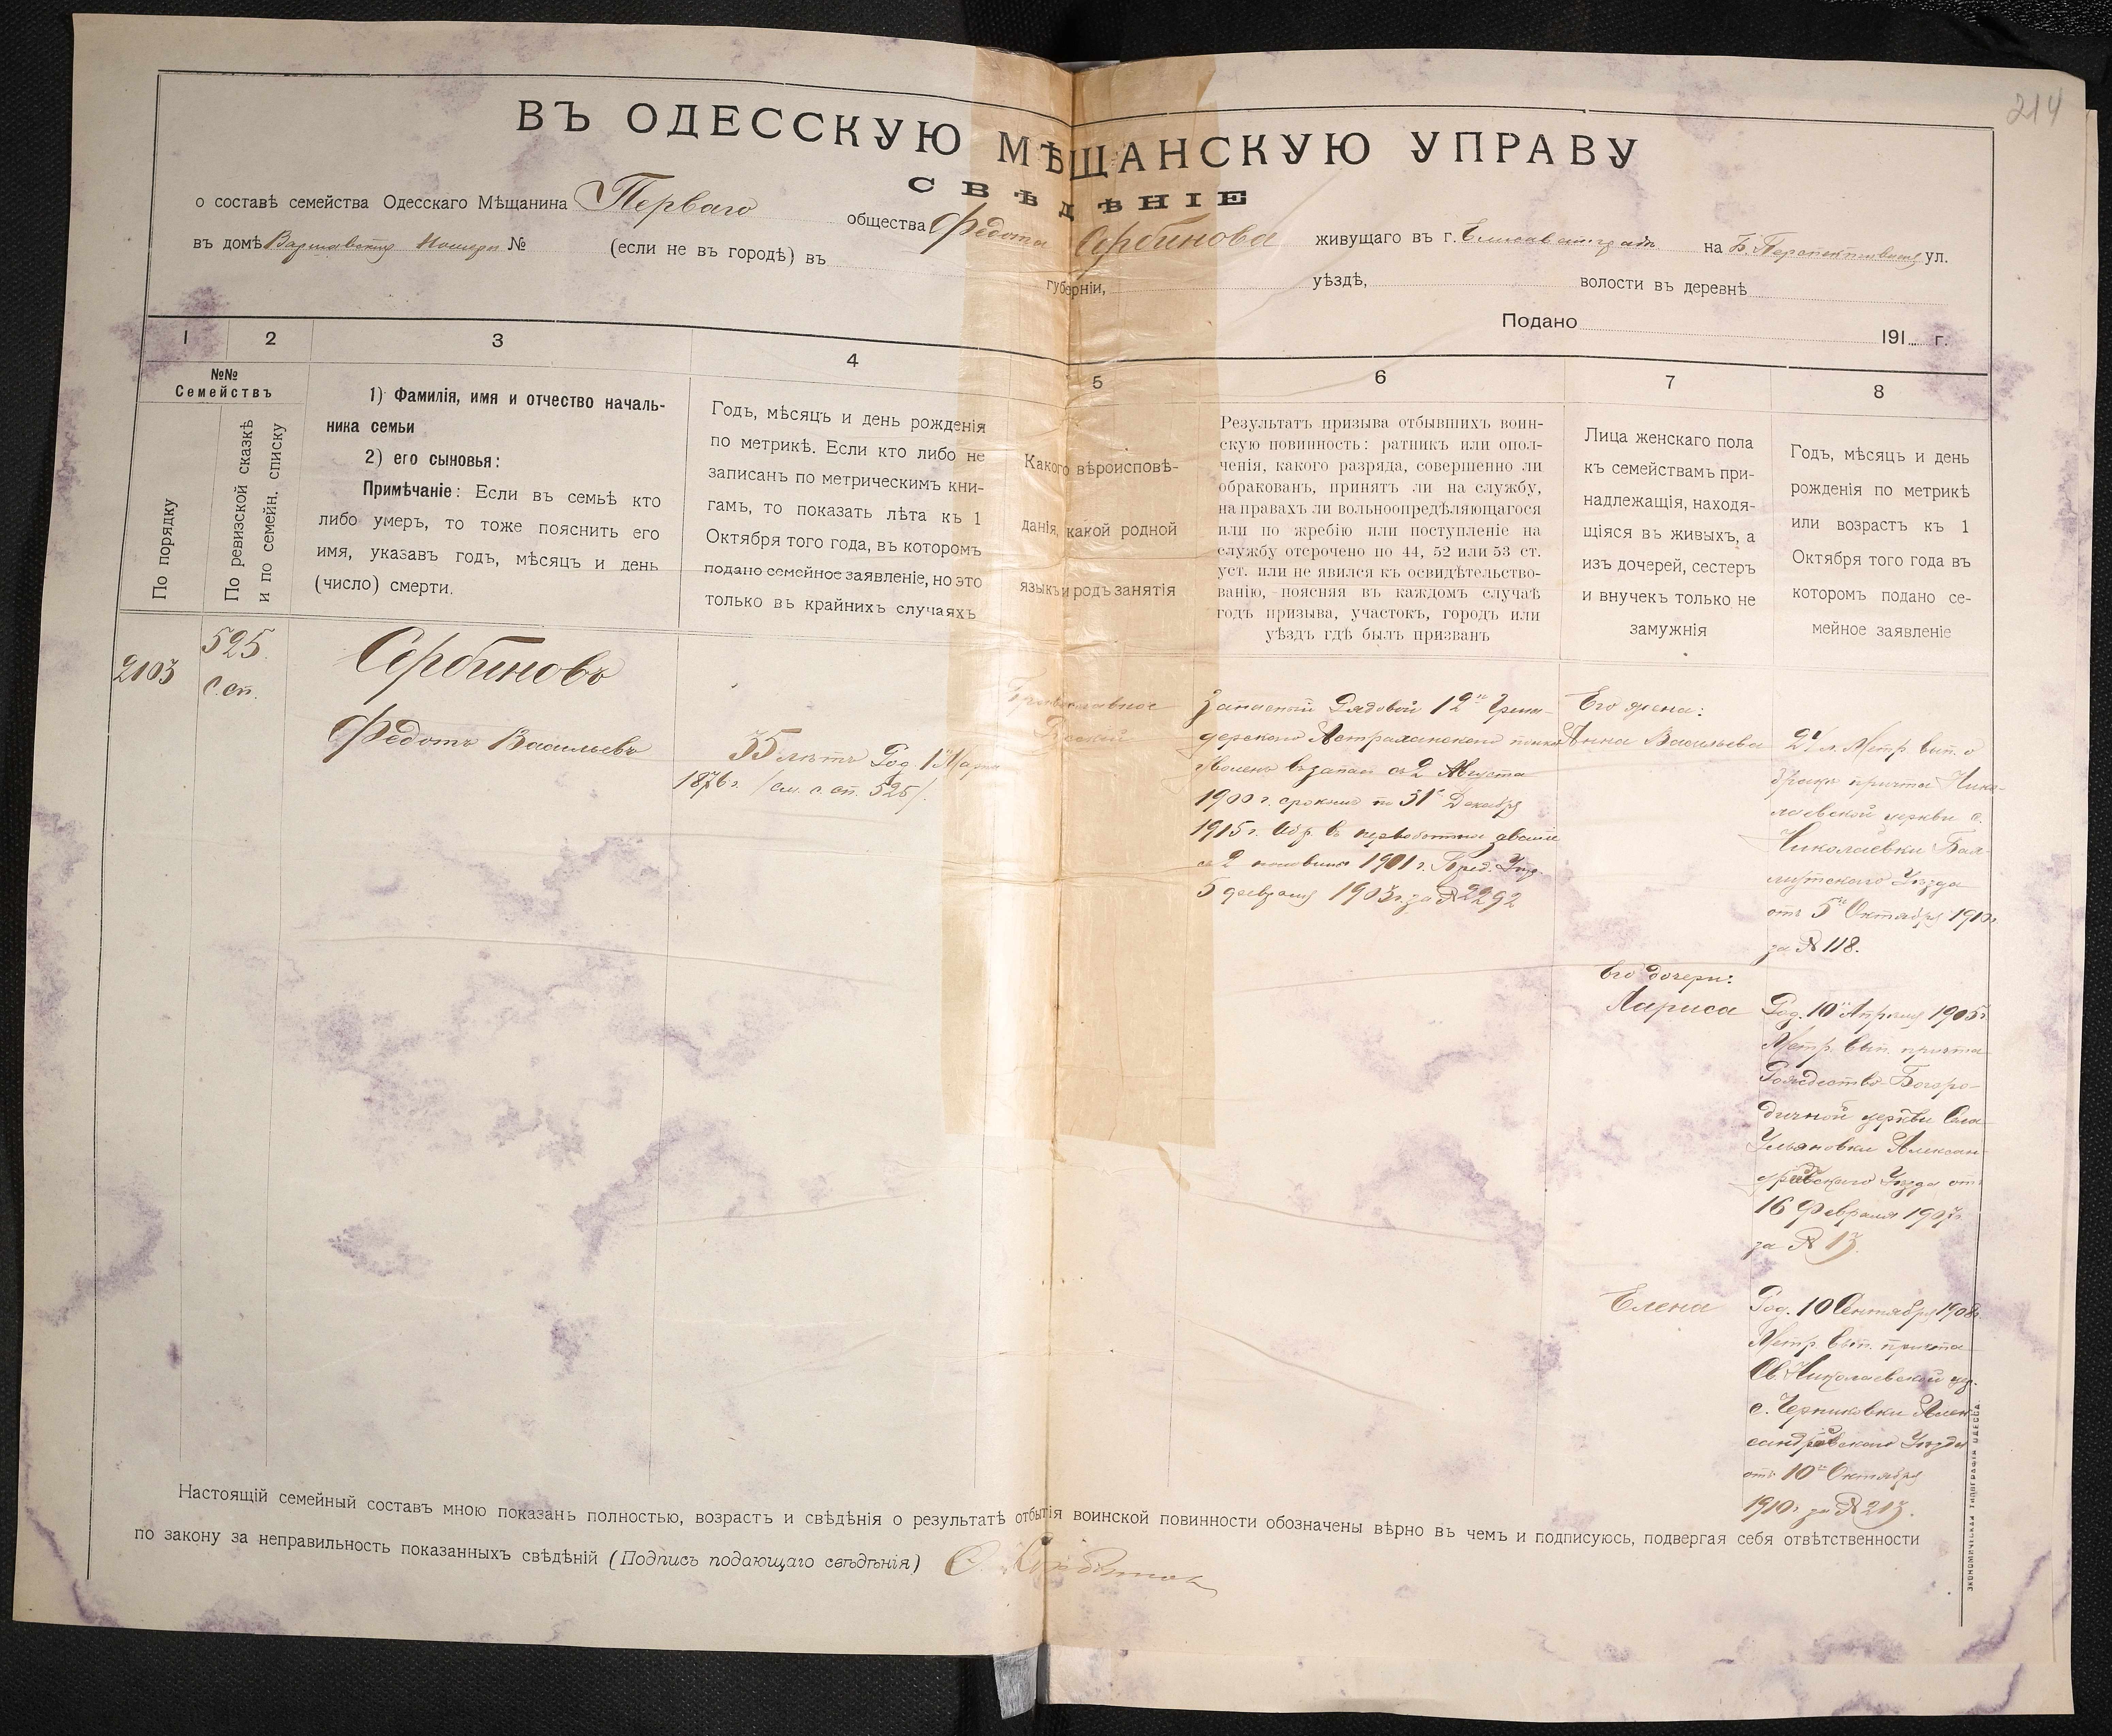 214
ВЪ ОДЕССКУЮ МѢЩАНСКУЮ УПРАВУ
СВѢДѢНІЕ
о составѣ семейства Одесскаго Мѣщанина Перваго общества Федота Сербинова живущаго въ г. Елисаветградѣ на Б. Перспективной ул.
въ домѣ Варшавскіе Номера № (если не въ городѣ) въ губерніи, уѣздѣ, волости въ деревнѣ
Подано 191 г.
1 2 3 4 5 6 7 8
№№
Семействъ
По порядку
По ревизской сказкѣ
и по семейн. списку
1) Фамилія, имя и отчество началь-
ника семьи
2) его сыновья:
Примѣчаніе: Если въ семьѣ кто
либо умеръ, то тоже пояснить его
имя, указавъ годъ, мѣсяцъ и день
(число) смерти.
Годъ, мѣсяцъ и день рожденія
по метрикѣ. Если кто либо не
записанъ по метрическимъ кни-
гамъ, то показать лѣта къ 1
Октября того года, въ которомъ
подано семейное заявленіе, но это
только въ крайнихъ случаяхъ
Какого вѣроисповѣ-
данія, какой родной
языкъ и родъ занятія
Результатъ призыва отбывшихъ воин-
скую повинность: ратникъ или опол-
ченія, какого разряда, совершенно ли
обракованъ, принятъ ли на службу,
на правахъ ли вольноопредѣляющагося
или по жребію или поступленіе на
службу отсрочено по 44, 52 или 53 ст.
уст. или не явился къ освидѣтельство-
ванію, поясняя въ каждомъ случаѣ
годъ призыва, участокъ, городъ или
уѣздъ гдѣ былъ призванъ
Лица женскаго пола
къ семействамъ при-
надлежащія, находя-
щіяся въ живыхъ, а
изъ дочерей, сестеръ
и внучекъ только не
замужнія
Годъ, мѣсяцъ и день
рожденія по метрикѣ
или возрастъ къ 1
Октября того года въ
которомъ подано се-
мейное заявленіе
2103
525
С. сп.
Сербиновъ
Федотъ Васильевъ
35 лѣтъ Род. 1 Марта
1876 г. /см. с. сп. 525/.
Православное
Русскій
Запасный Рядовой 12го Грена-
дерскаго Астраханскаго полка
Уволенъ въ запасъ съ 2 Августа
1900 г. срокомъ по 31е Декабря
1915 г.
1901 г.
5 февраля 1903 г. за № 2292
Его жена:
Анна Васильева
27 л. Метр. вып. о
бракѣ причта Нико-
лаевской церкви с.
Николаевки
Уѣзда
отъ 5го Октября 1910 г.
за № 118.
Его дочери:
Лариса
Род. 10 Апрѣля 1905 г.
Метр. вып. причта
Рождество-Богоро-
дичной церкви Села
Ульяновки Алексан-
дрійскаго Уѣзда отъ
16 Февраля 1907 г.
за № 13.
Елена
Род. 10 Сентября 1908 г.
Метр. вып. причта
Св. Николаевской цер.
с. Алек-
сандрійскаго Уѣзда
отъ 10го Октября
1910 г. за № 213.
Настоящій семейный составъ мною показанъ полностью, возрастъ и свѣдѣнія о результатѣ отбытія воинской повинности обозначены вѣрно въ чемъ и подписуюсь, подвергая себя отвѣтственности
по закону за неправильность показанныхъ свѣдѣній (Подпись подающаго свѣдѣнія)
ЭКОНОМИЧЕСКАЯ ТИПОГРАФІЯ ОДЕССА.